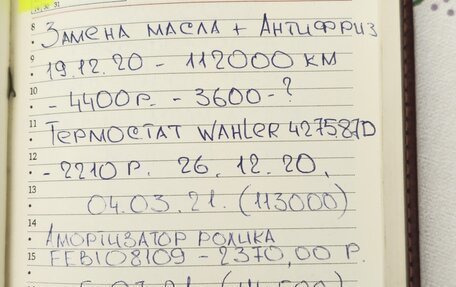 8 Замена масла + Антифриз
9 19.12.20 - 112000 км
10 - 4400р. - 3600-?
11 Термостат WAHLER 427587D
12 - 2210р. 26.12.20.
13 04.03.21. (113000)
14
Амортизатор ролика
15 FEBI08109 - 2370,00 р.